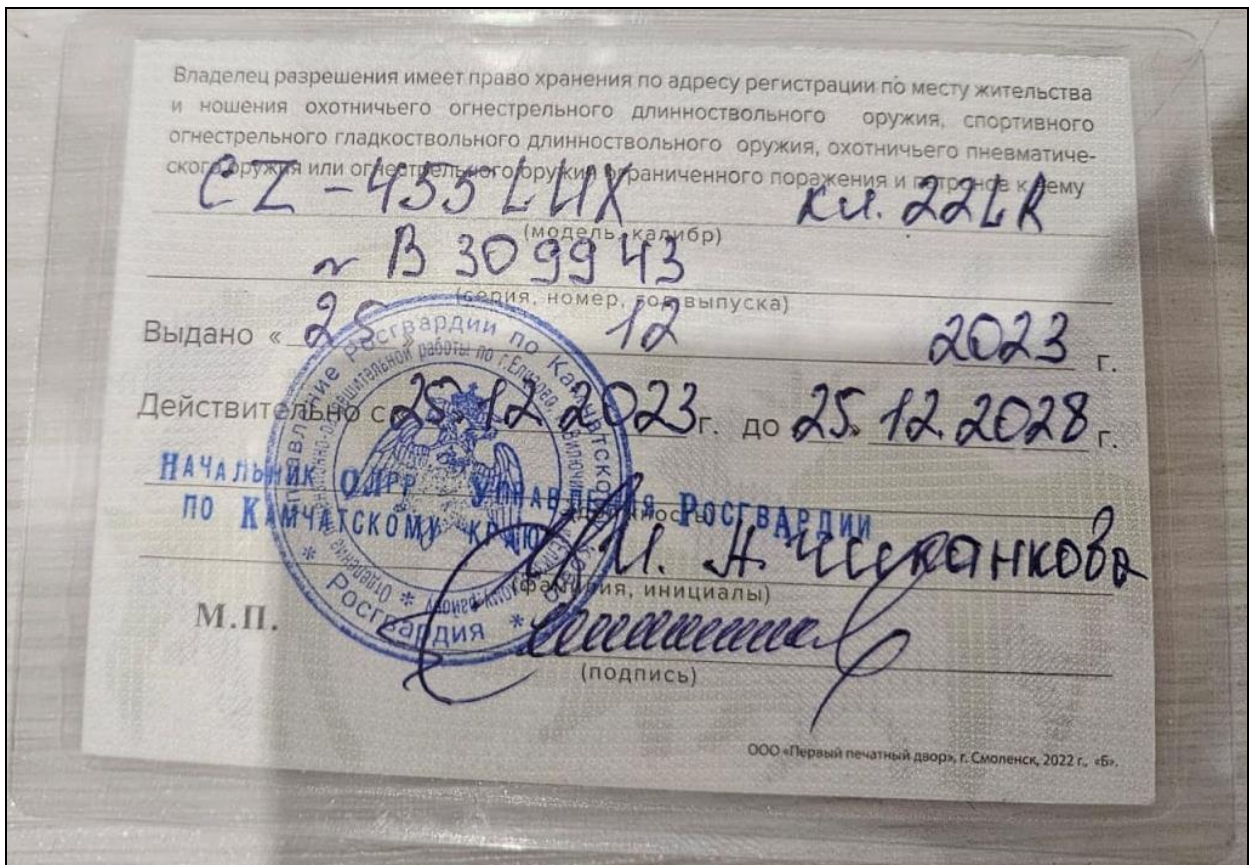 Владелец разрешения имеет право хранения по адресу регистрации по месту жительства
и ношения охотничьего огнестрельного длинноствольного оружия, спортивного
огнестрельного гладкоствольного длинноствольного оружия, охотничьего пневматиче-
ского оружия или огнестрельного оружия ограниченного поражения и патронов к нему
CZ-455 LUX кл. 22LR
(модель, калибр)
№ В 309943
(серия, номер, год выпуска)
Выдано « 25 » 12 2023 г.
Действительно с 25.12.2023г. до 25.12.2028 г.
НАЧАЛЬНИК ОЛРР УПРАВЛЕНИЯ РОСГВАРДИИ
ПО КАМЧАТСКОМУ КРАЮ
(должность)
И. А.
(фамилия, инициалы)
М.П.
(подпись)
Управление Росгвардии по Камчатскому
* Росгвардия *
ООО «Первый печатный двор», г. Смоленск, 2022 г., «Б».